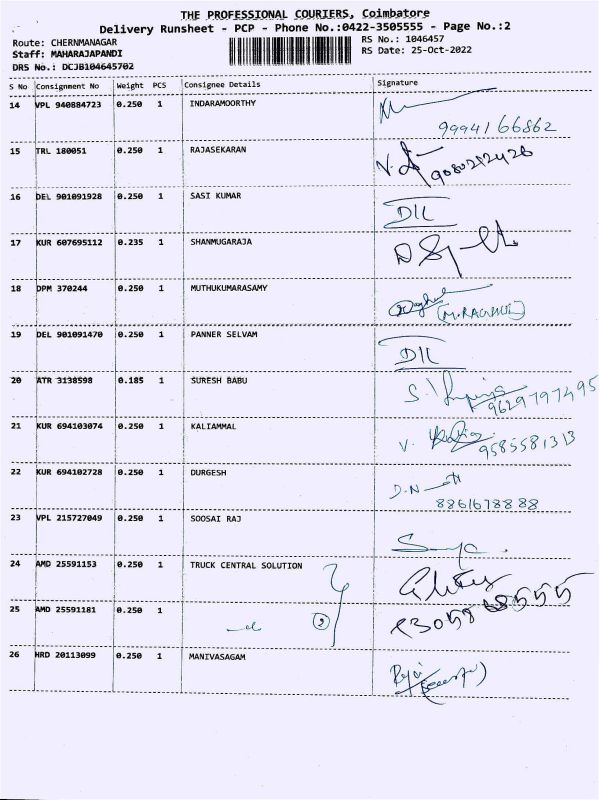 THE PROFESSIONAL COURIERS, Coimbatore
Delivery Runsheet - PCP - Phone No.:0422-3505555 - Page No.:2
Route: CHERMANAGAR
RS No.: 1046457
Staff: MAHARAJAPANDI
RS Date: 25-Oct-2022
DRS No.: DCJB104645702
S No Consignment No Weight PCS Consignee Details Signature
14 VPL 940884723 0.250 1 INDARAMOORTHY
9994166862
15 TRL 180051 0.250 1 RAJASEKARAN
9080252426
16 DEL 901091928 0.250 1 SASI KUMAR
DIL
17 KUR 607695112 0.235 1 SHANMUGARAJA
18 DPM 370244 0.250 1 MUTHUKUMARASAMY
19 DEL 901091470 0.250 1 PANNER SELVAM
DIL
20 ATR 3138598 0.185 1 SURESH BABU
9629797495
21 KUR 694103074 0.250 1 KALIAMMAL
9585581313
22 KUR 694102728 0.250 1 DURGESH
D.N
8861678888
23 VPL 215727049 0.250 1 SOOSAI RAJ
24 AMD 25591153 0.250 1 TRUCK CENTRAL SOLUTION
25 AMD 25591181 0.250 1
2
26 HRD 20113099 0.250 1 MANIVASAGAM